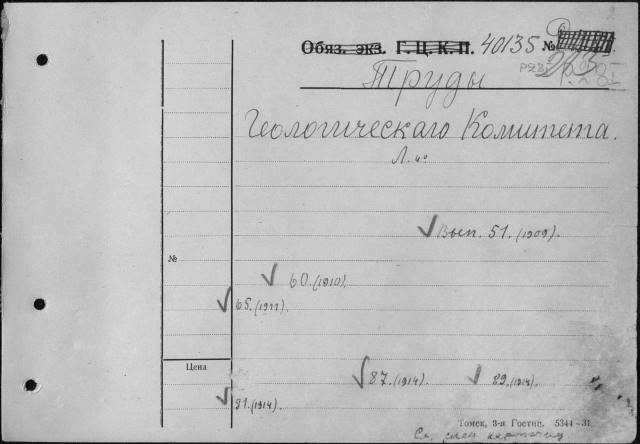 Обяз. экз. Г.Ц.К.П. 40135 №
Труды
Геологическаго Комитета.
Вып. 51. (1909).
№
60. (1910).
65. (1911).
Цена
87. (1914). 89. (1914).
91. (1914).
Томск, 3-я Гостип. 5344-31
См. след карточку